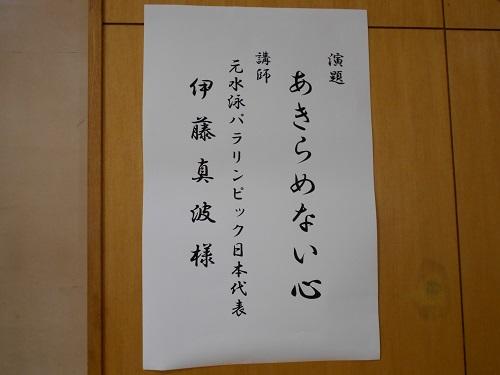 演題
あきらめない心
講師
元水泳パラリンピック日本代表
伊藤真波様